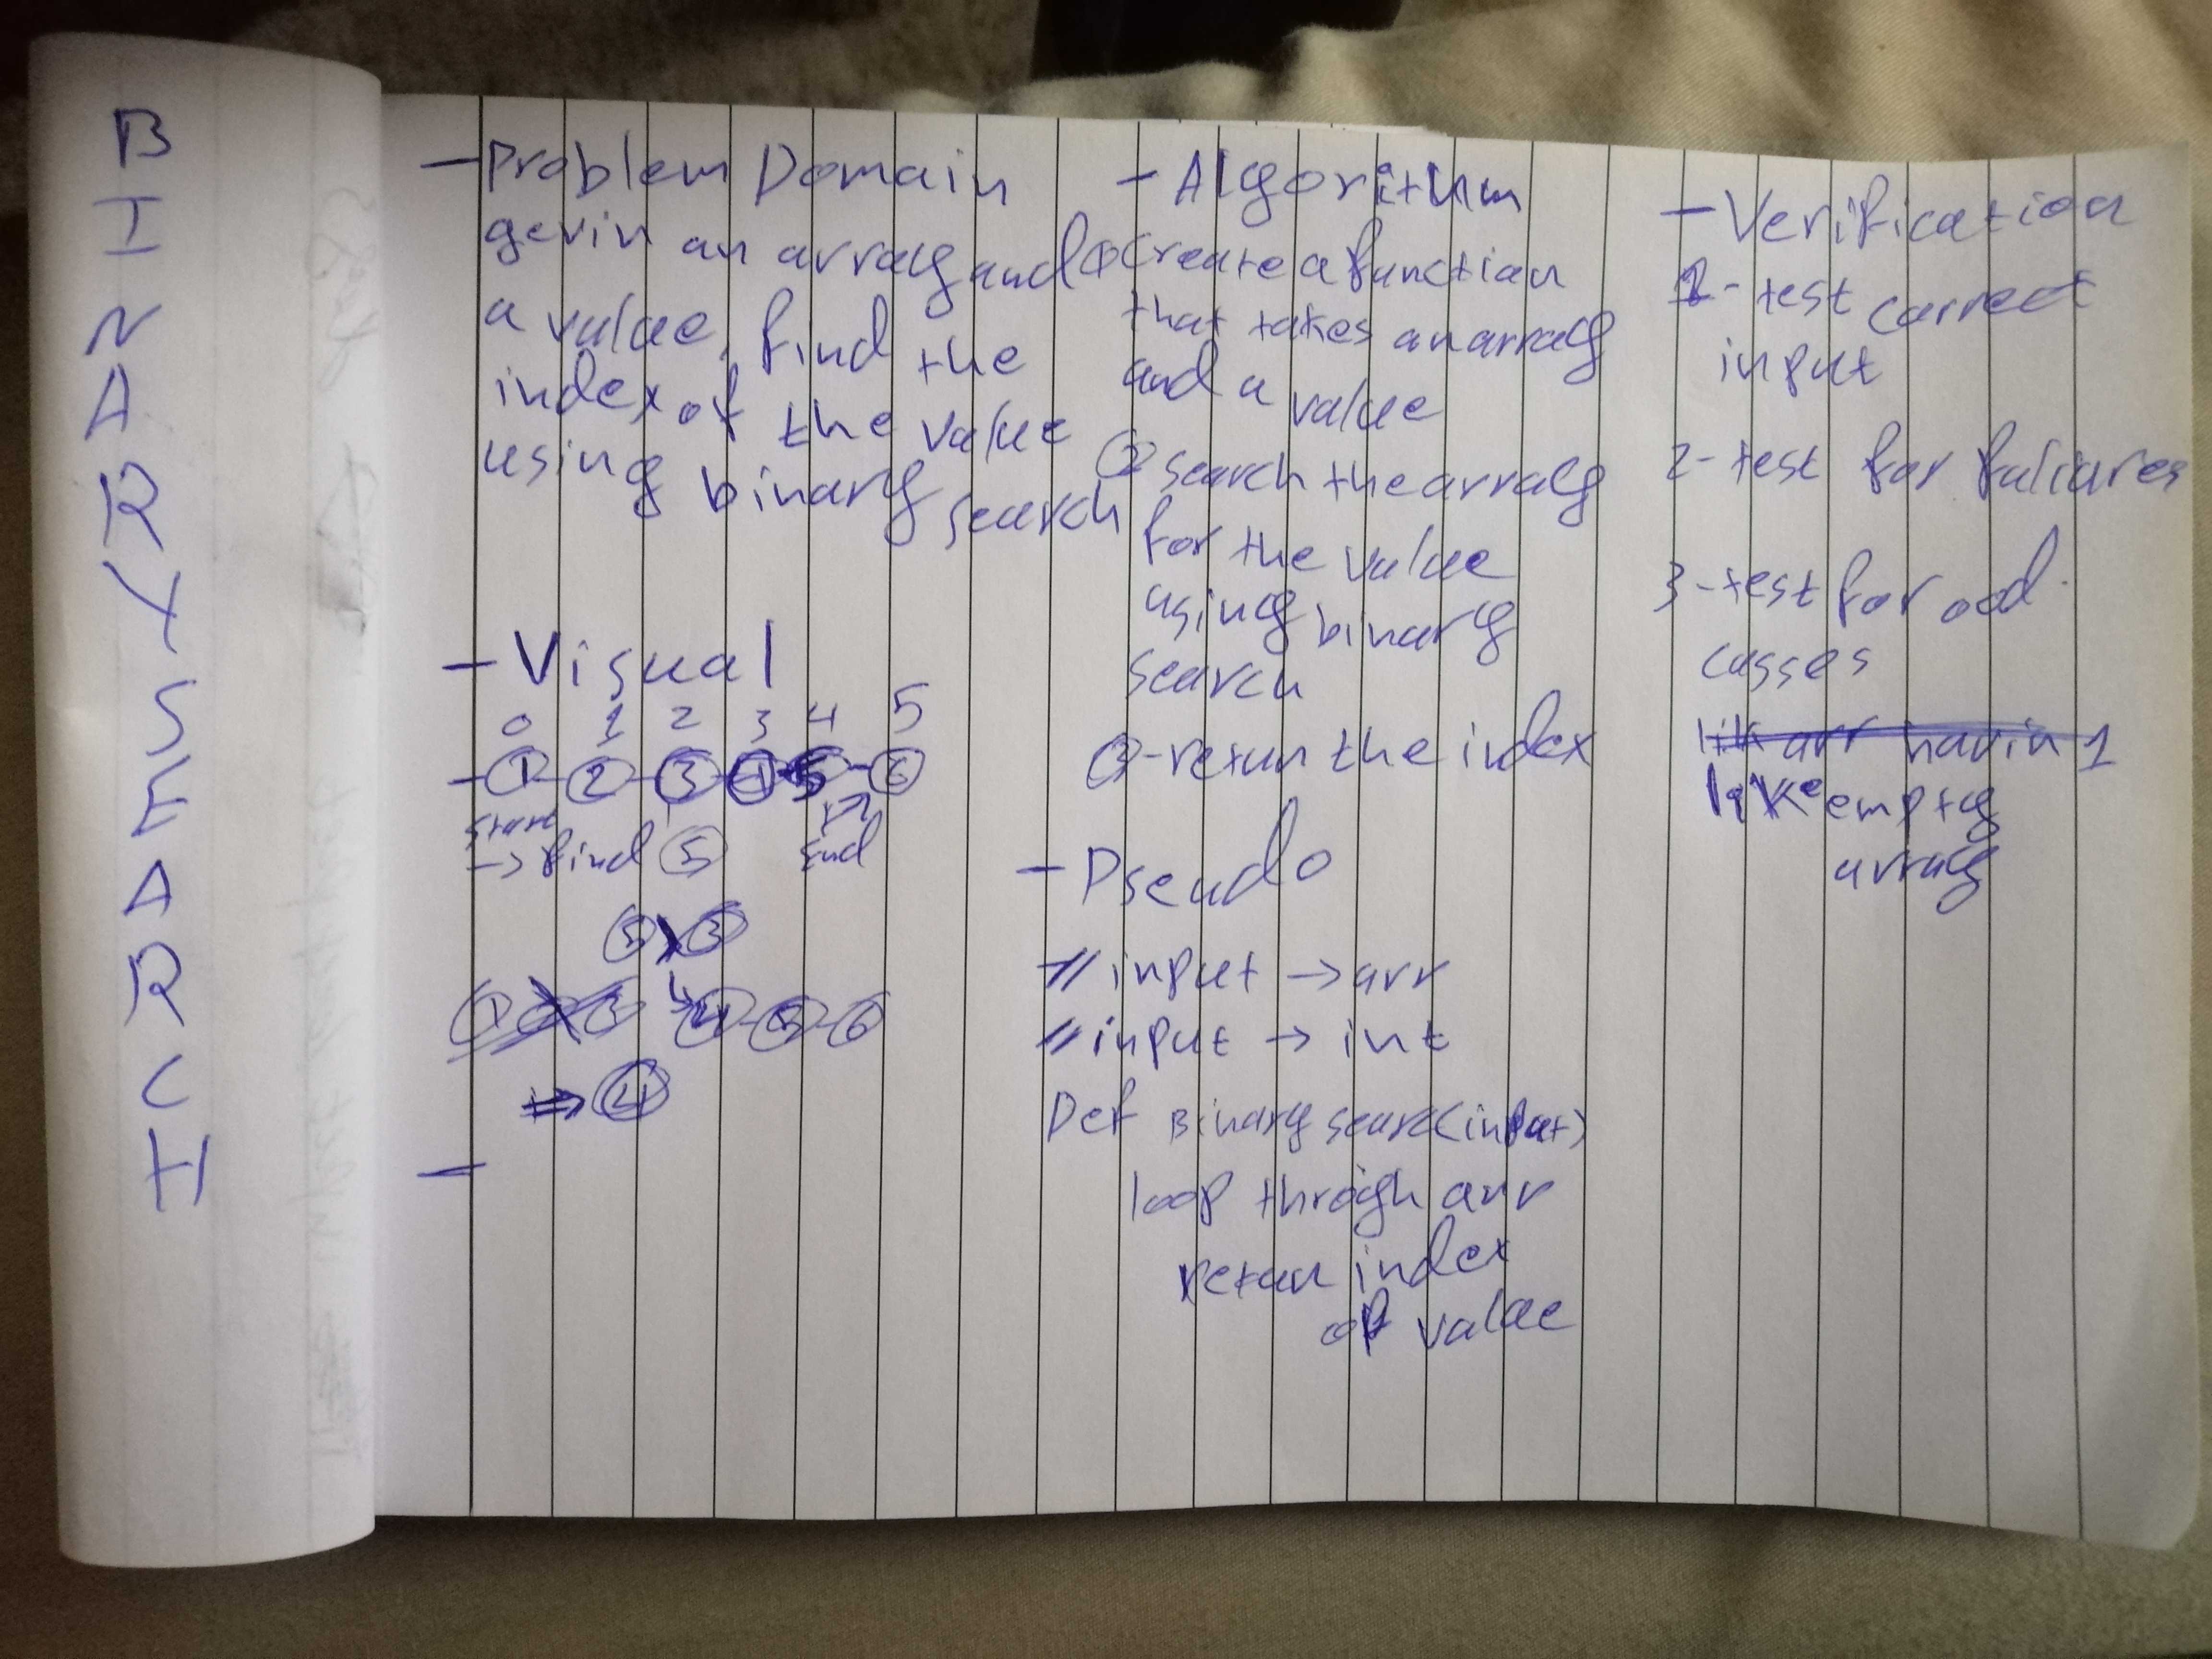 BINARY SEARCH
- Problem Domain
gevin an array and
a value, find the
index of the value
using binary search
- Visual
0 1 2 3 4 5
1 2 3 4 5 6
start
End
→ find 5
5 > 3
1 2 3 ↳ 4 5 6
⇒ 4
-
- Algorithm
① Create a function
that takes an array
and a value
② search the array
for the value
using binary
search
③ - retun the index
- Pseudo
// input → arr
// input → int
Def Binary searc(input)
loop throigh arr
retun index
of value
- Verification
1 - test correct
input
2 - test for faliares
3 - test for odd
casses
lik arr havin 1
like empty
array